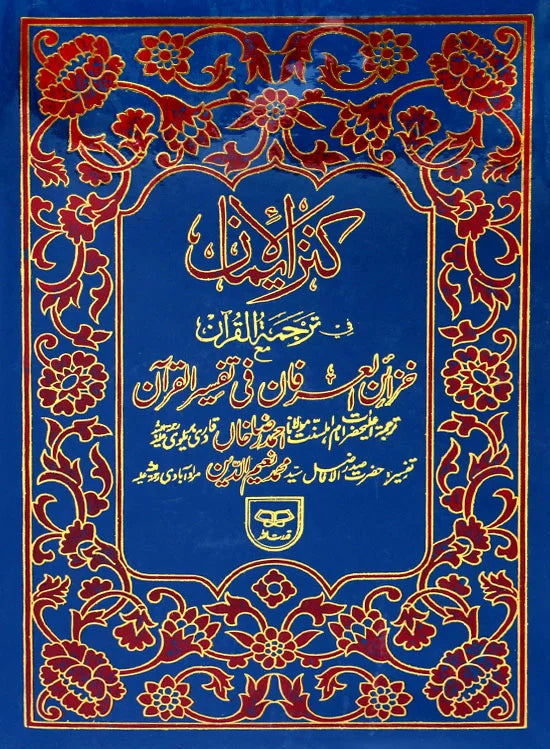 کنزالایمان
فی ترجمۃ القرآن
مع
خزائن العرفان فی تفسیر القرآن
ترجمۃ: اعلیٰحضرت امام اہلسنت مولانا احمد رضا خاں قادری بریلوی رحمۃ اللہ علیہ
تفسیر: حضرت صدر الافاضل سید محمد نعیم الدین مراد آبادی رحمۃ اللہ علیہ